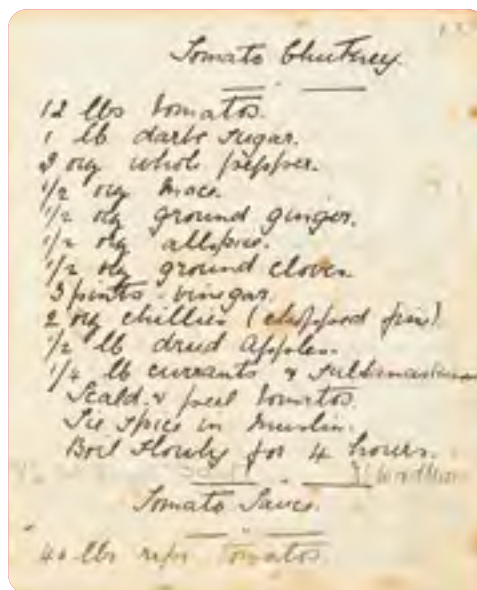 Tomato Chutney.
12 lbs tomatos.
1 lb dark sugar.
3 ozs whole pepper.
1/2 oz mace.
1/2 oz ground ginger.
1/2 oz allspice.
1/2 oz ground cloves.
3 pints vinegar.
2 oz chillies (chopped fine)
1/2 lb dried apples.
1/4 lb currants & sultanas
Scald & peel tomatos.
Tie spice in muslin.
Boil slowly for 4 hours.
Tomato Sauce.
40 lbs ripe tomatos.